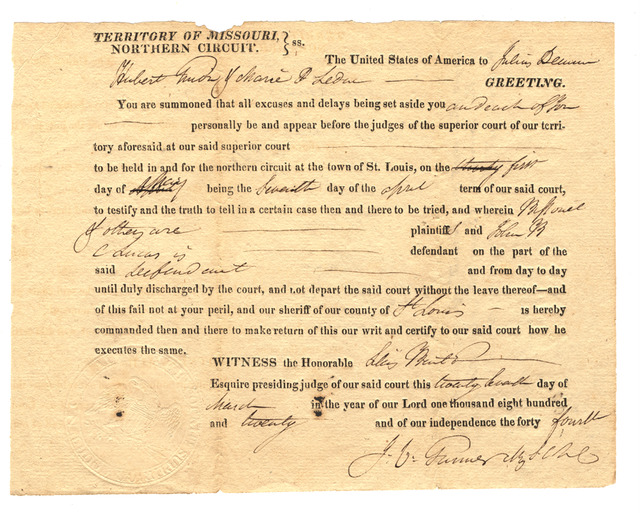 TERRITORY OF MISSOURI, } ss.
NORTHERN CIRCUIT.
The United States of America to Julius
Hubert & Marie P Leduc GREETING.
You are summoned that all excuses and delays being set aside you and each of you
personally be and appear before the judges of the superior court of our terri-
tory aforesaid at our said superior court
to be held in and for the northern circuit at the town of St. Louis, on the first
day of May being the seventh day of the april term of our said court,
to testify and the truth to tell in a certain case then and there to be tried, and wherein
& others are plaintiffs and John B
C Lucas is defendant on the part of the
said defendant and from day to day
until duly discharged by the court, and not depart the said court without the leave thereof—and
of this fail not at your peril, and our sheriff of our county of St Louis is hereby
commanded then and there to make return of this our writ and certify to our said court how he
executes the same.
WITNESS the Honorable
Esquire presiding judge of our said court this twenty day of
March in the year of our Lord one thousand eight hundred
and twenty and of our independence the forty fourth